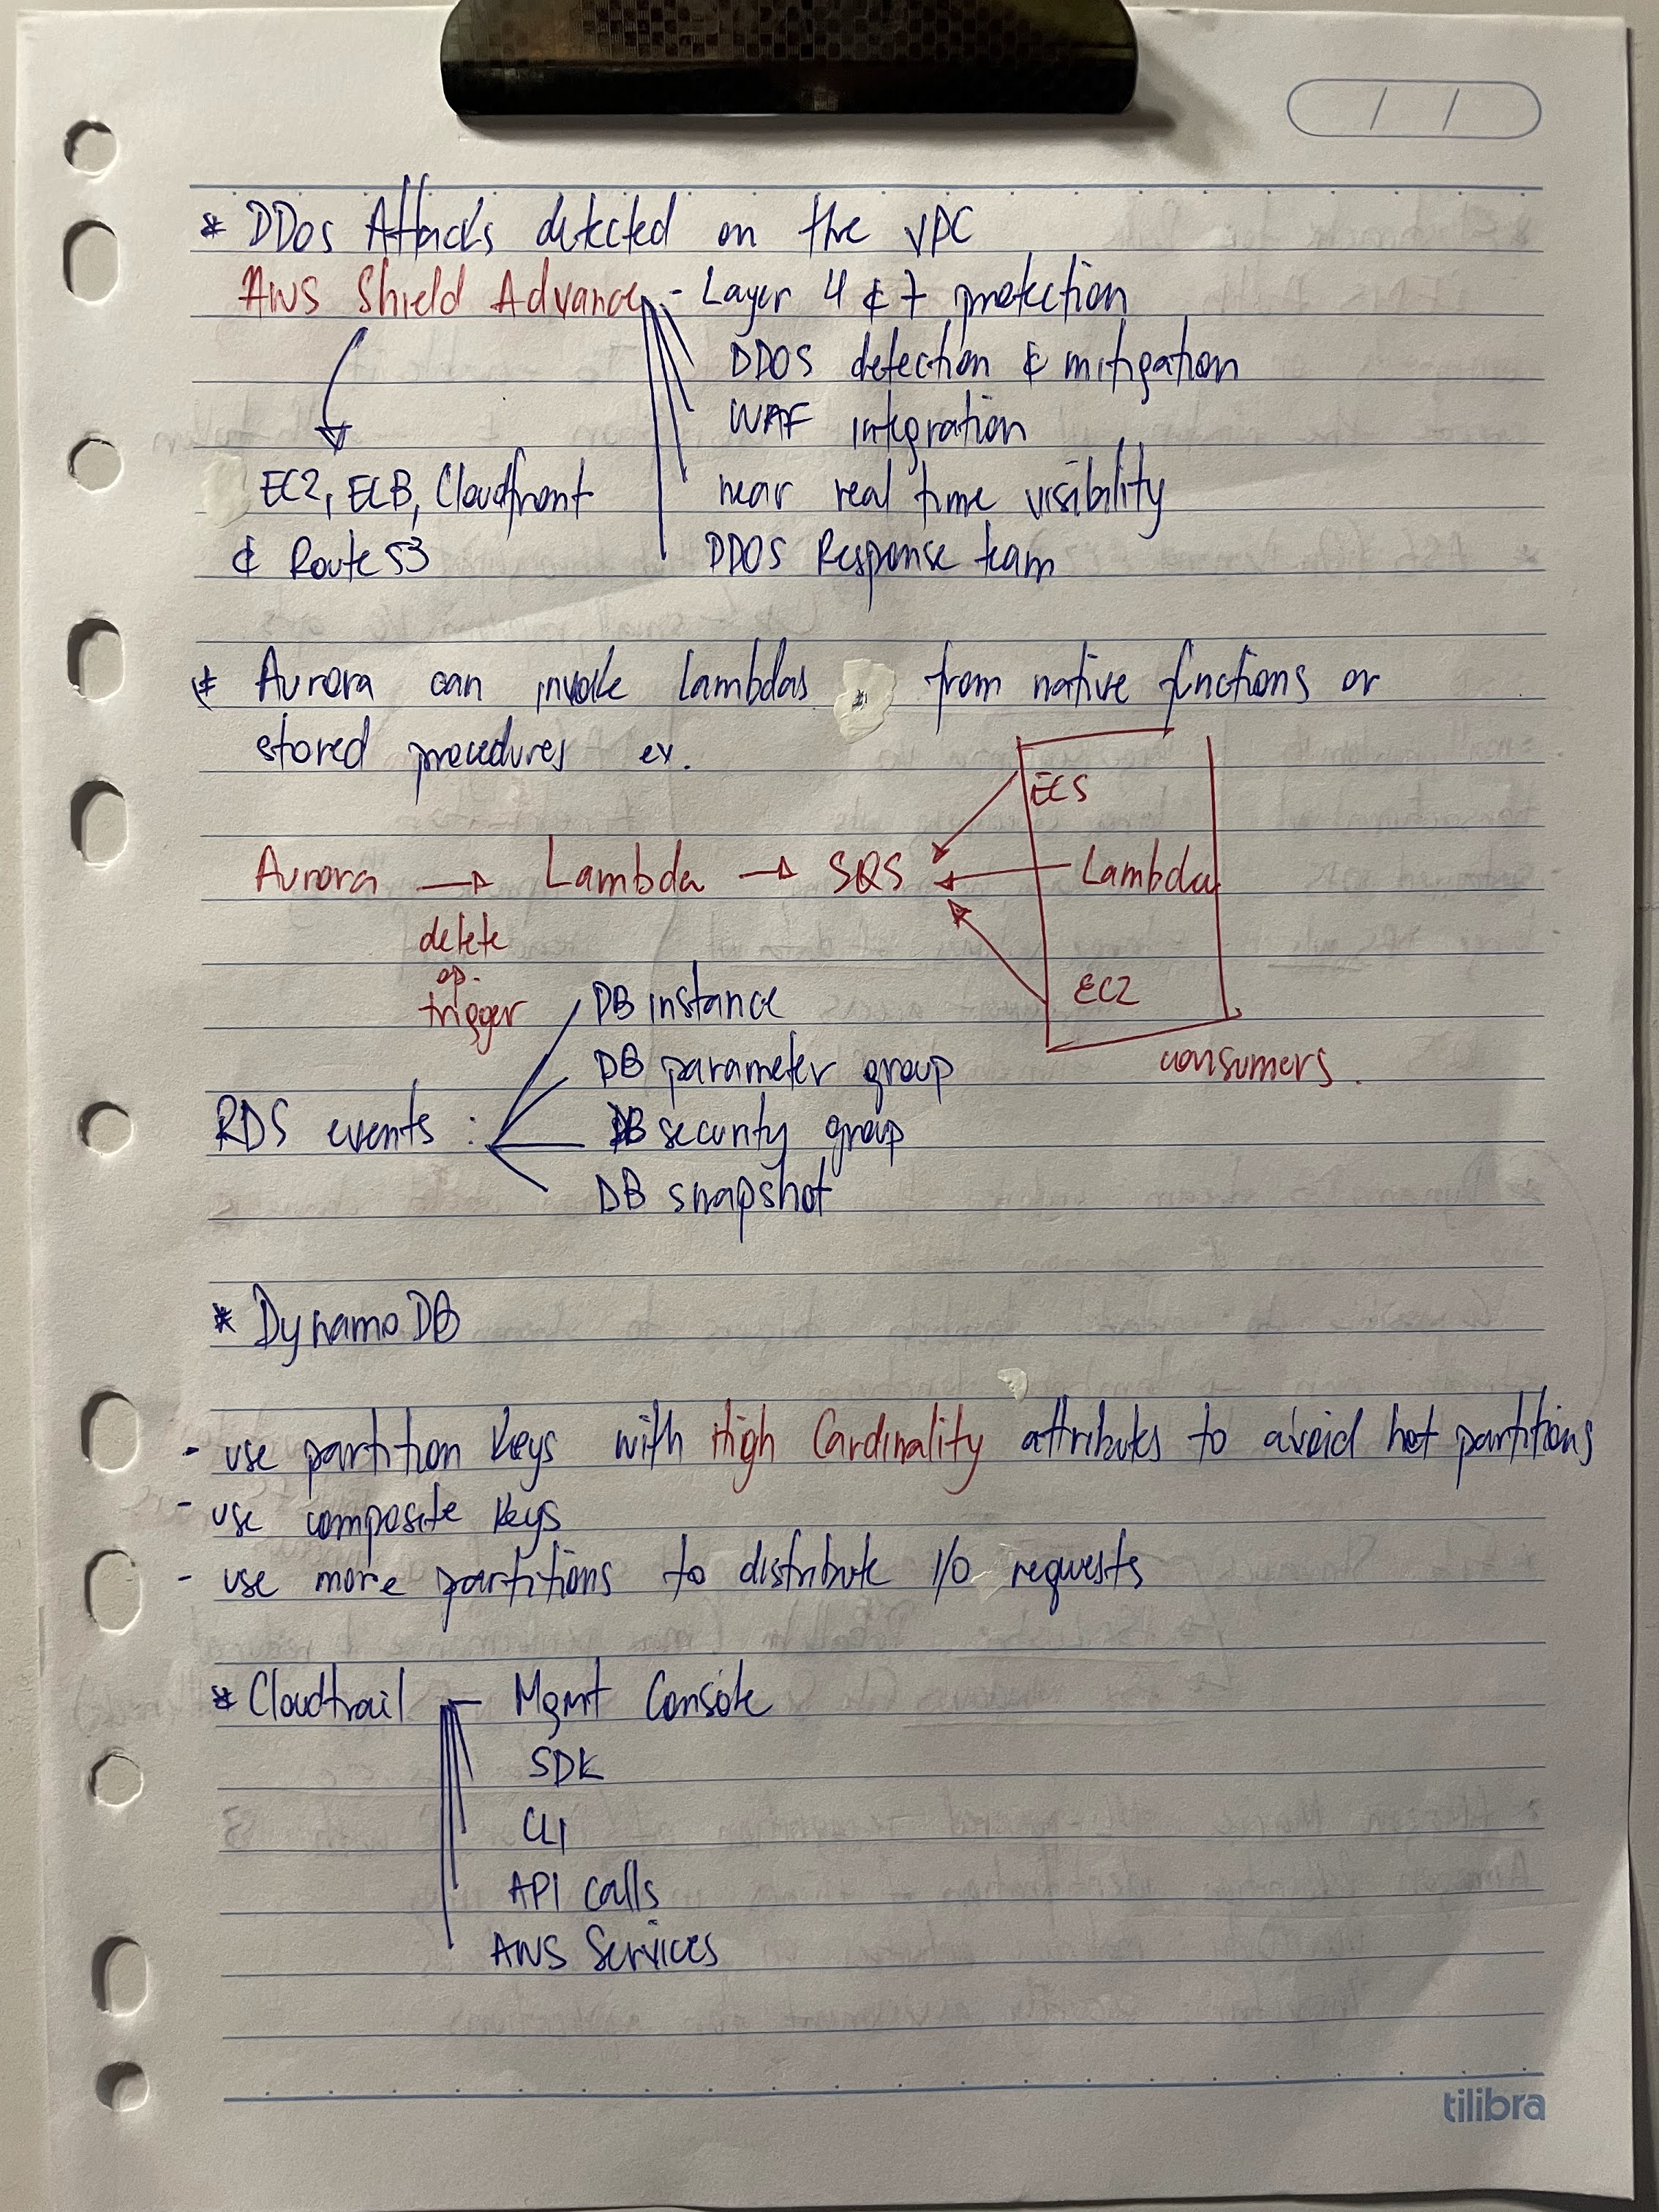 * DDos Attacks detected on the VPC
AWS Shield Advance - Layer 4 & 7 protection
DDOS detection & mitigation
WAF integration
near real time visibility
DDOS Response team
EC2, ELB, Cloudfront
& Route 53
* Aurora can invoke Lambdas from native functions or
stored procedures ex.
Aurora → Lambda → SQS
delete
op.
trigger
ECS
Lambda
EC2
consumers.
RDS events :
DB instance
DB parameter group
DB security group
DB snapshot
* DynamoDB
- use partition keys with High Cardinality attributes to avoid hot partitions
- use composite keys
- use more partitions to distribute I/O requests
* Cloudtrail - Mgmt Console
SDK
CLI
API calls
AWS Services
tilibra